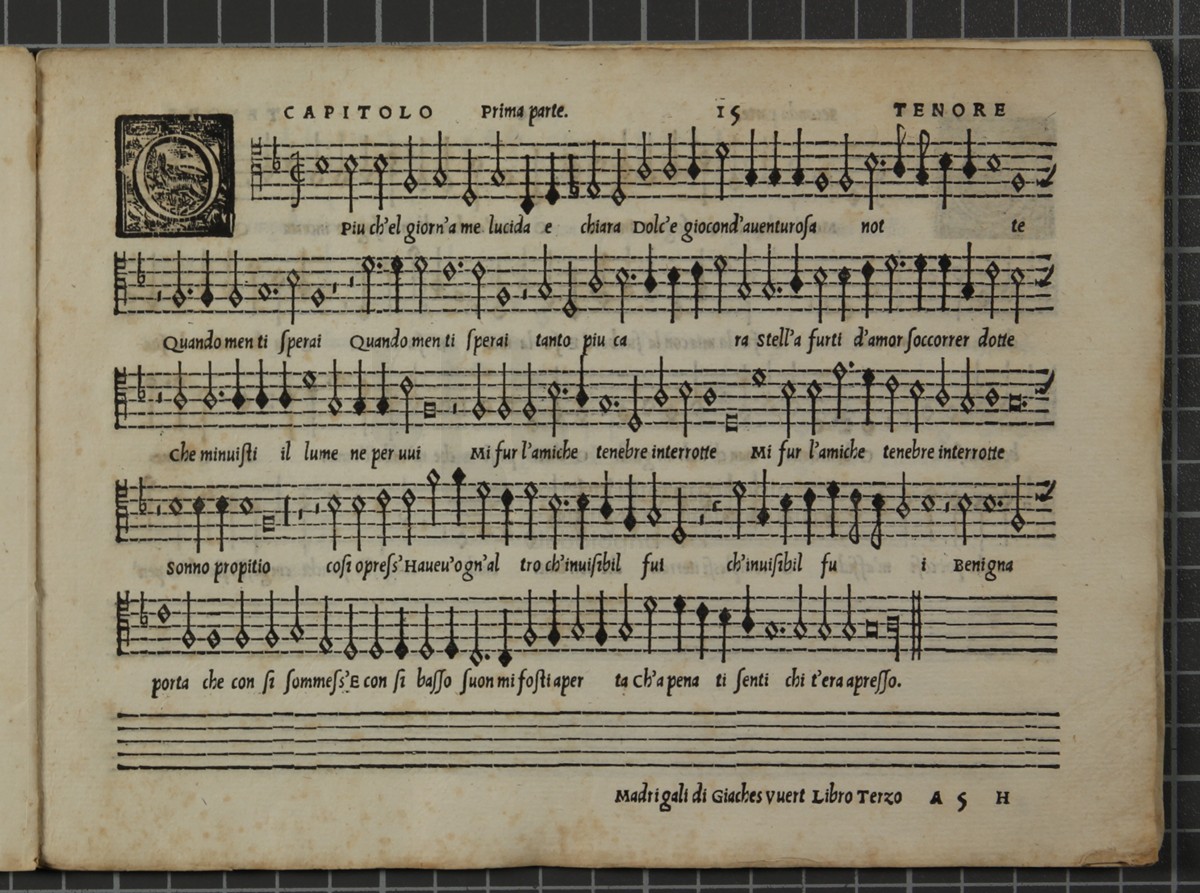 CAPITOLO Prima parte. 15 TENORE
O Piu ch'el giorn'a me lucida e chiara Dolc'e giocond'auenturosa not te
Quando men ti sperai Quando men ti sperai tanto piu ca ra Stell'a furti d'amor soccorrer dotte
Che minuisti il lume ne per uui Mi fur l'amiche tenebre interrotte Mi fur l'amiche tenebre interrotte
Sonno propitio cosi opress'Haueu'ogn'al tro ch'inuisibil fui ch'inuisibil fu i Benigna
porta che con si sommess'E con si basso suon mi fosti aper ta Ch'a pena ti senti chi t'era apresso.
Madrigali di Giaches Vuert Libro Terzo A 5 H